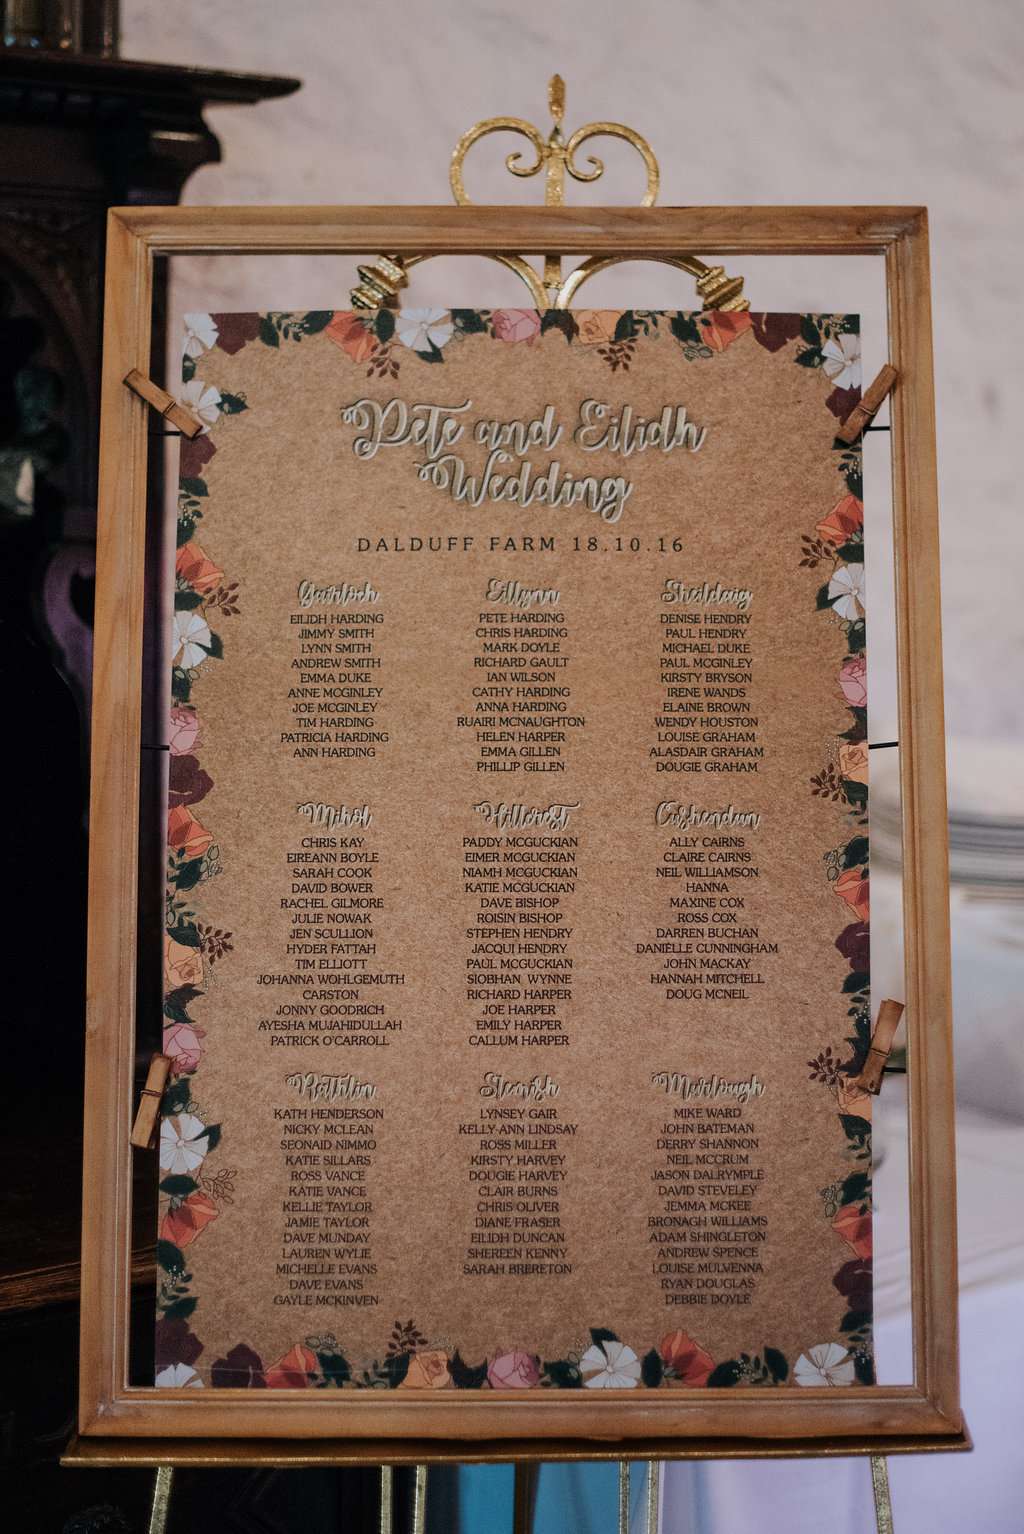 Pete and Eilidh
Wedding
DALDUFF FARM 18.10.16
Gairloch
EILIDH HARDING
JIMMY SMITH
LYNN SMITH
ANDREW SMITH
EMMA DUKE
ANNE MCGINLEY
JOE MCGINLEY
TIM HARDING
PATRICIA HARDING
ANN HARDING
Eillynn
PETE HARDING
CHRIS HARDING
MARK DOYLE
RICHARD GAULT
IAN WILSON
CATHY HARDING
ANNA HARDING
RUAIRI MCNAUGHTON
HELEN HARPER
EMMA GILLEN
PHILLIP GILLEN
Sheildaig
DENISE HENDRY
PAUL HENDRY
MICHAEL DUKE
PAUL MCGINLEY
KIRSTY BRYSON
IRENE WANDS
ELAINE BROWN
WENDY HOUSTON
LOUISE GRAHAM
ALASDAIR GRAHAM
DOUGIE GRAHAM
CHRIS KAY
EIREANN BOYLE
SARAH COOK
DAVID BOWER
RACHEL GILMORE
JULIE NOWAK
JEN SCULLION
HYDER FATTAH
TIM ELLIOTT
JOHANNA WOHLGEMUTH
CARSTON
JONNY GOODRICH
AYESHA MUJAHIDULLAH
PATRICK O'CARROLL
Hillcrest
PADDY MCGUCKIAN
EIMER MCGUCKIAN
NIAMH MCGUCKIAN
KATIE MCGUCKIAN
DAVE BISHOP
ROISIN BISHOP
STEPHEN HENDRY
JACQUI HENDRY
PAUL MCGUCKIAN
SIOBHAN WYNNE
RICHARD HARPER
JOE HARPER
EMILY HARPER
CALLUM HARPER
Cushendun
ALLY CAIRNS
CLAIRE CAIRNS
NEIL WILLIAMSON
HANNA
MAXINE COX
ROSS COX
DARREN BUCHAN
DANIELLE CUNNINGHAM
JOHN MACKAY
HANNAH MITCHELL
DOUG MCNEIL
Rathlin
KATH HENDERSON
NICKY MCLEAN
SEONAID NIMMO
KATIE SILLARS
ROSS VANCE
KATIE VANCE
KELLIE TAYLOR
JAMIE TAYLOR
DAVE MUNDAY
LAUREN WYLIE
MICHELLE EVANS
DAVE EVANS
GAYLE MCKINVEN
LYNSEY GAIR
KELLY-ANN LINDSAY
ROSS MILLER
KIRSTY HARVEY
DOUGIE HARVEY
CLAIR BURNS
CHRIS OLIVER
DIANE FRASER
EILIDH DUNCAN
SHEREEN KENNY
SARAH BRERETON
Murlough
MIKE WARD
JOHN BATEMAN
DERRY SHANNON
NEIL MCCRUM
JASON DALRYMPLE
DAVID STEVELEY
JEMMA MCKEE
BRONAGH WILLIAMS
ADAM SHINGLETON
ANDREW SPENCE
LOUISE MULVENNA
RYAN DOUGLAS
DEBBIE DOYLE